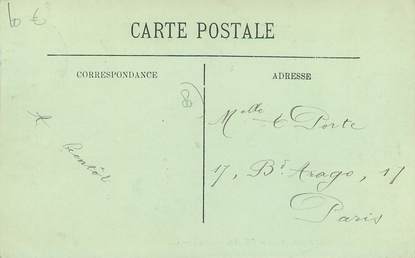 6 €
CARTE POSTALE
CORRESPONDANCE
ADRESSE
(88)
A
bientôt
Melle & Porte
17, Bt Arago, 17
Paris